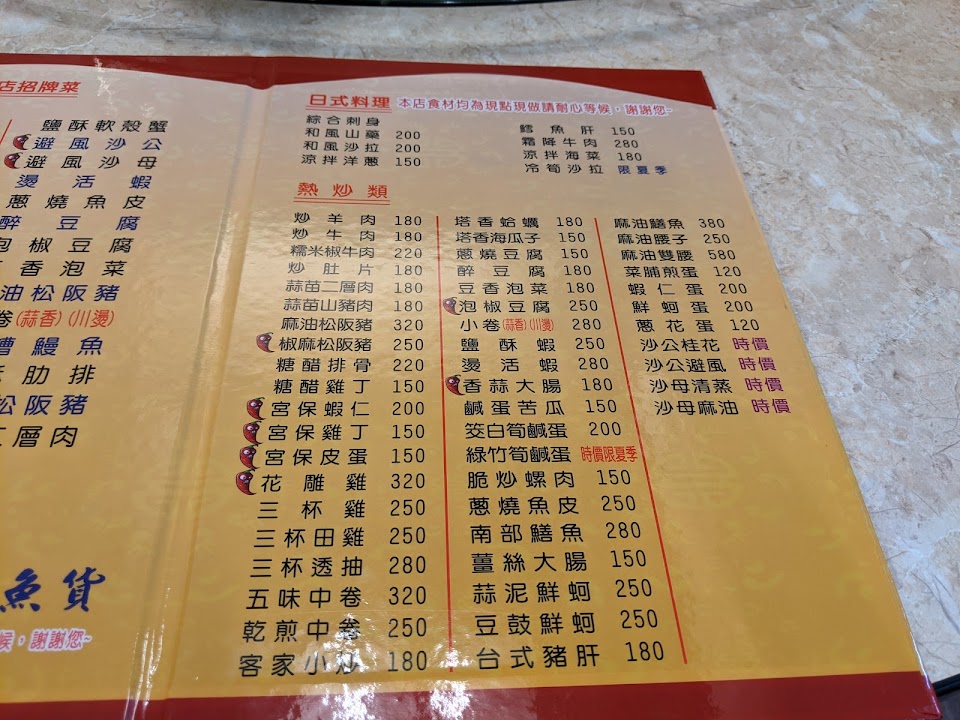 店招牌菜
鹽酥軟殼蟹
避風沙公
避風沙母
燙活蝦
蔥燒魚皮
醉豆腐
泡椒豆腐
香泡菜
油松阪豬
卷(蒜香)(川燙)
糟鰻魚
肋排
松阪豬
二層肉
魚貨
候，謝謝您~
日式料理 本店食材均為現點現做請耐心等候，謝謝您~
綜合刺身
和風山藥 200
和風沙拉 200
涼拌洋蔥 150
鱈魚肝 150
霜降牛肉 280
涼拌海菜 180
冷筍沙拉 限夏季
熱炒類
炒羊肉 180
炒牛肉 180
糯米椒牛肉 220
炒肚片 180
蒜苗二層肉 180
蒜苗山豬肉 180
麻油松阪豬 320
椒麻松阪豬 250
糖醋排骨 220
糖醋雞丁 150
宮保蝦仁 200
宮保雞丁 150
宮保皮蛋 150
花雕雞 320
三杯雞 250
三杯田雞 250
三杯透抽 280
五味中卷 320
乾煎中卷 250
客家小炒 180
塔香蛤蠣 180
塔香海瓜子 150
蔥燒豆腐 150
醉豆腐 180
豆香泡菜 180
泡椒豆腐 250
小卷(蒜香)(川燙) 280
鹽酥蝦 250
燙活蝦 280
香蒜大腸 180
鹹蛋苦瓜 150
筊白筍鹹蛋 200
綠竹筍鹹蛋 時價限夏季
脆炒螺肉 150
蔥燒魚皮 250
南部鱔魚 280
薑絲大腸 150
蒜泥鮮蚵 250
豆鼓鮮蚵 250
台式豬肝 180
麻油鱔魚 380
麻油腰子 250
麻油雙腰 580
菜脯煎蛋 120
蝦仁蛋 200
鮮蚵蛋 200
蔥花蛋 120
沙公桂花 時價
沙公避風 時價
沙母清蒸 時價
沙母麻油 時價